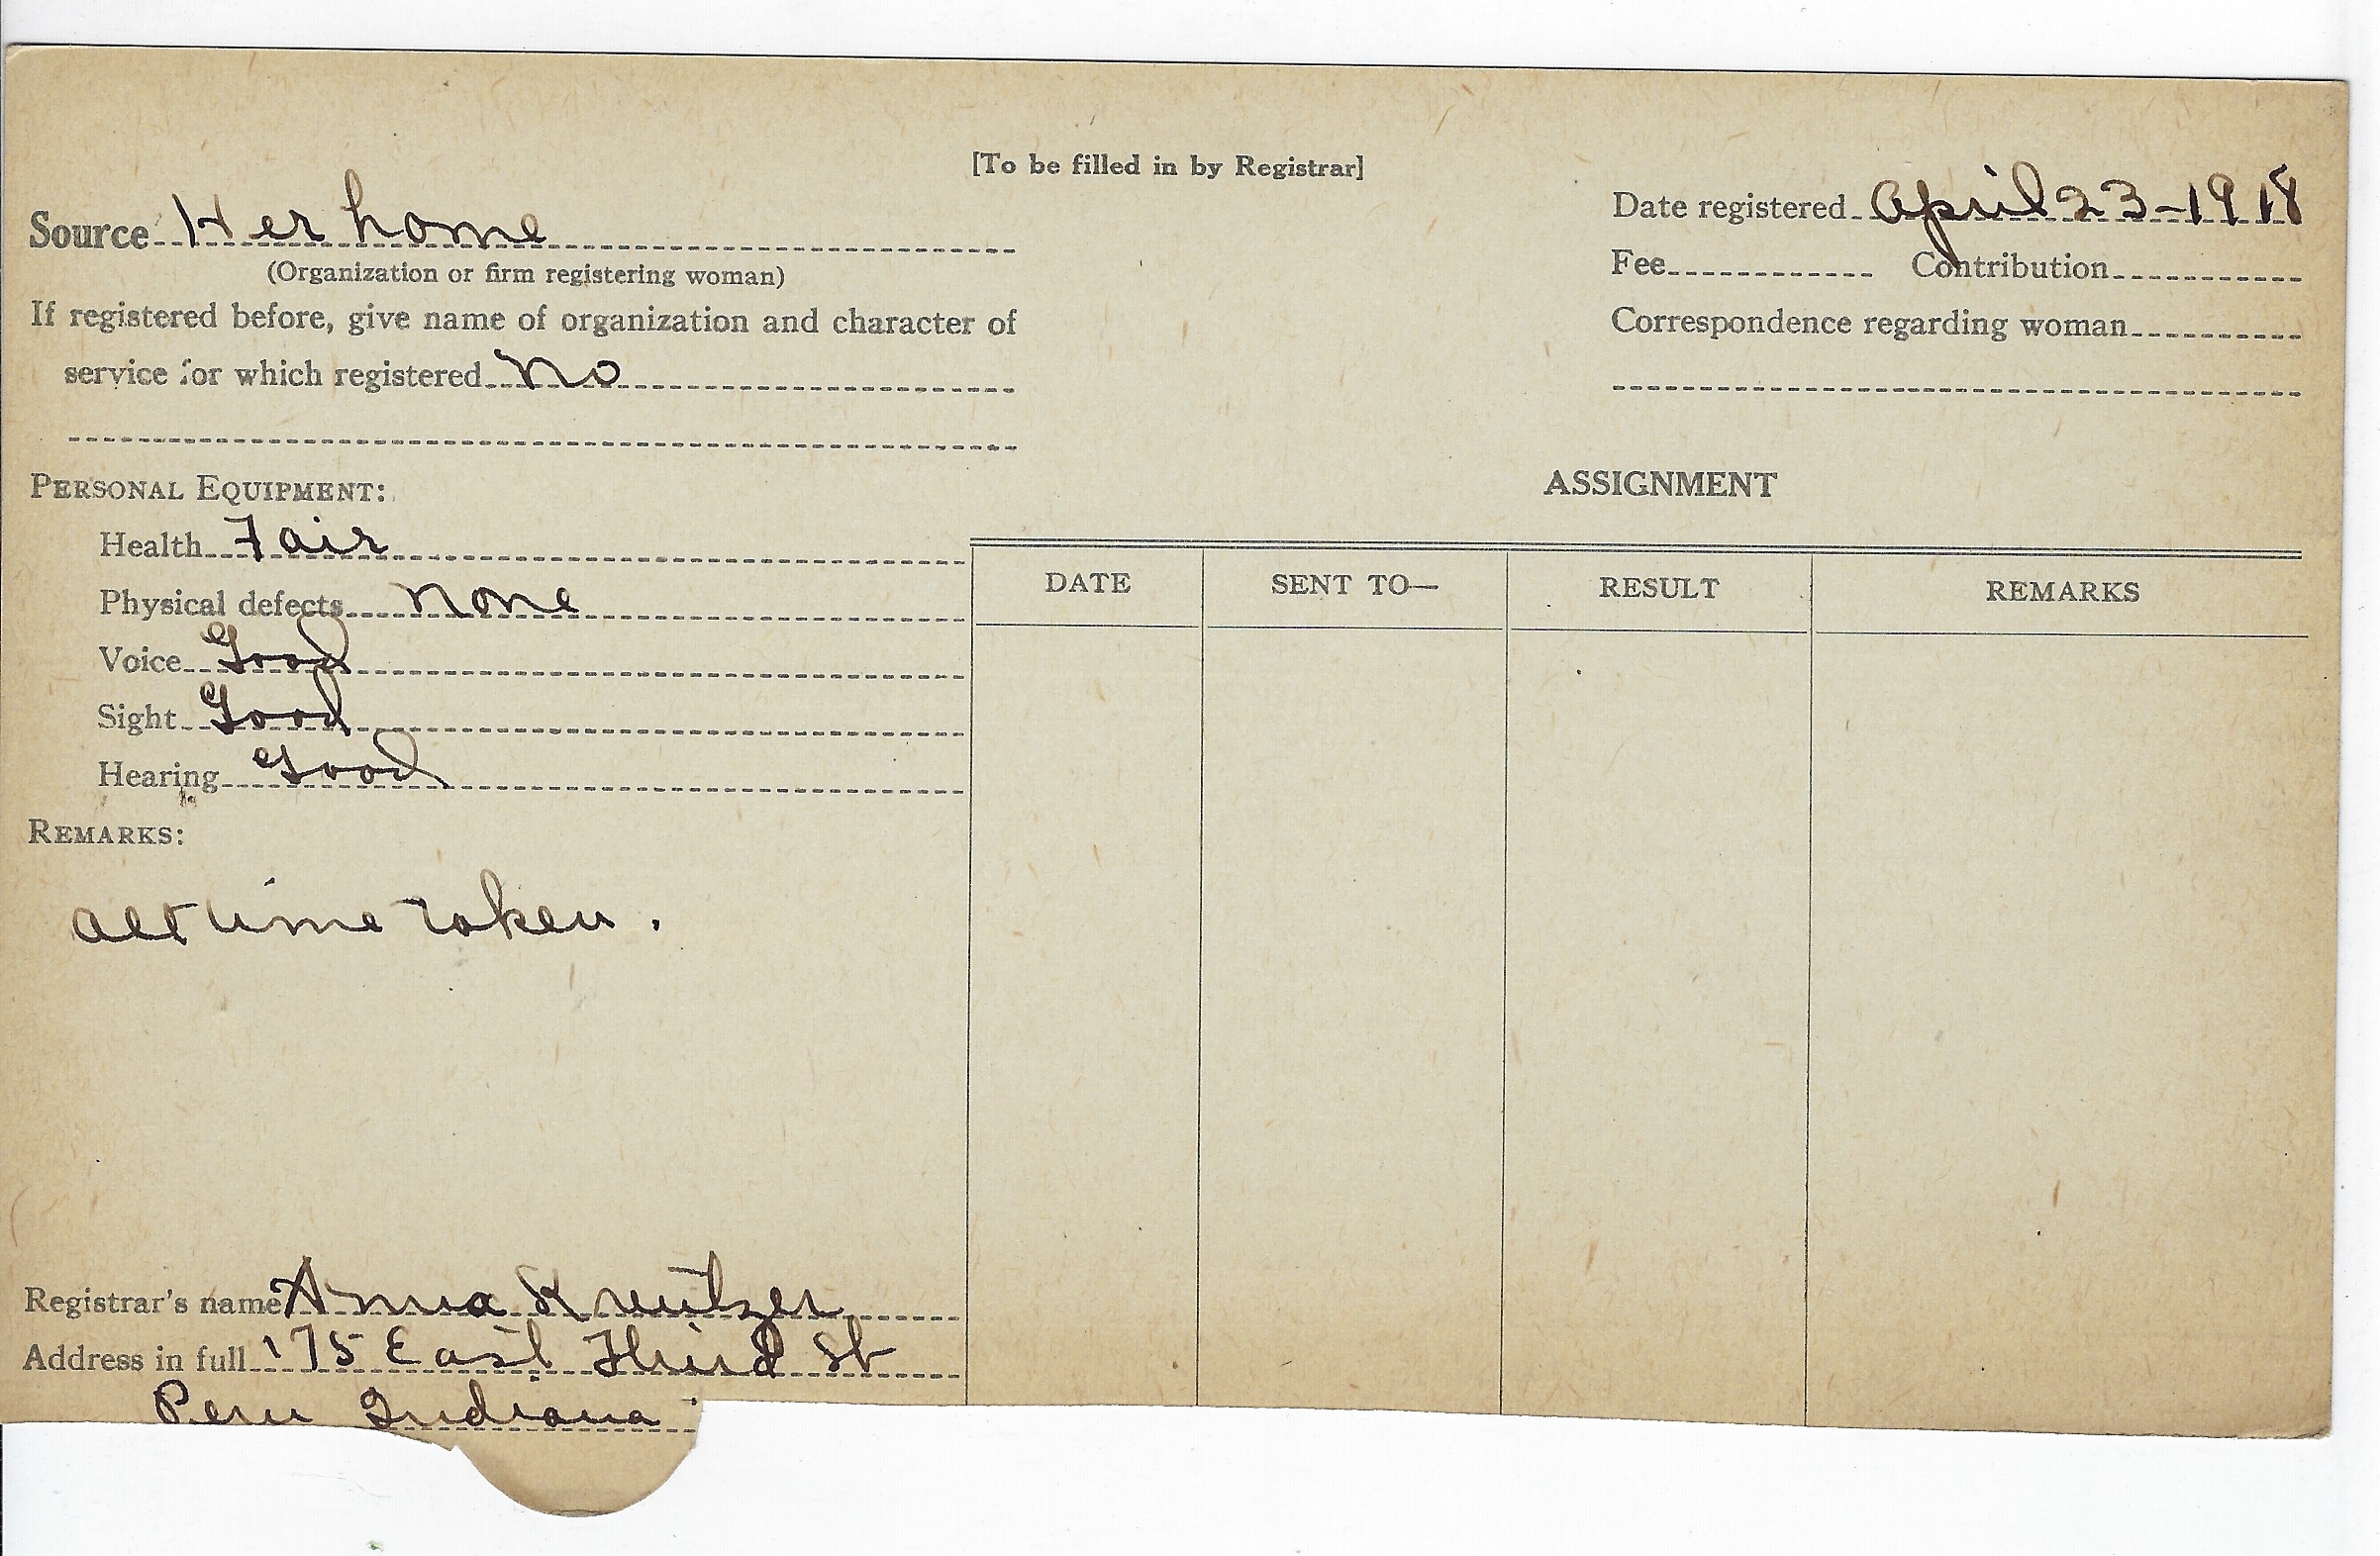 [To be filled in by Registrar]
Source Her home
(Organization or firm registering woman)
If registered before, give name of organization and character of
service for which registered No
Date registered April 23-1918
Fee Contribution
Correspondence regarding woman
PERSONAL EQUIPMENT:
Health Fair
Physical defects None
Voice Good
Sight Good
Hearing Good
REMARKS:
All time taken.
ASSIGNMENT
DATE SENT TO— RESULT REMARKS
Registrar's name Anna Kreutzer
Address in full 175 East Third St
Peru Indiana